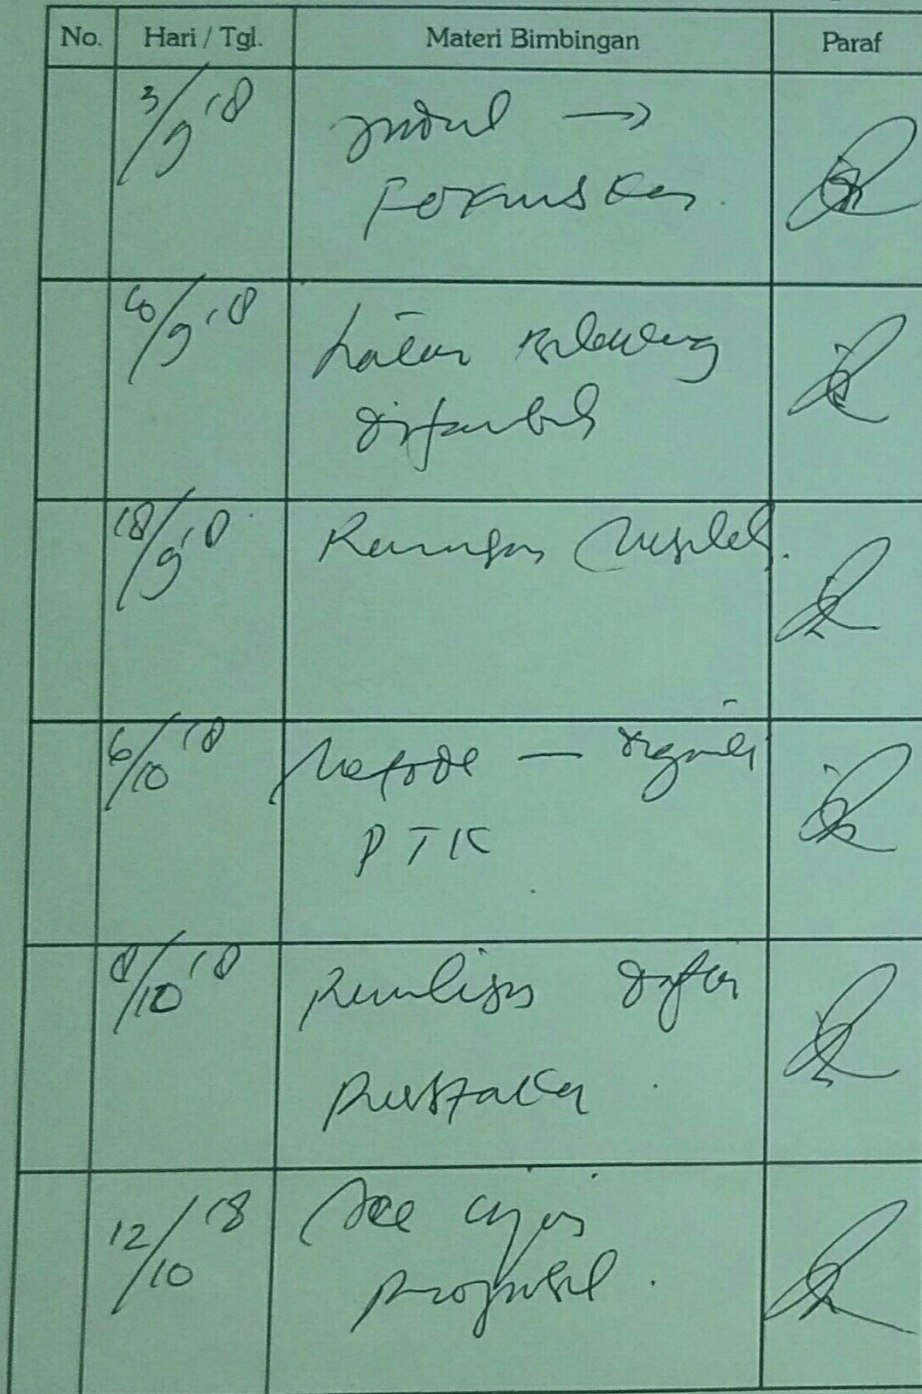 No. Hari / Tgl. Materi Bimbingan Paraf
3/9 '18 Judul →
Fokuskan.
Latar Belakang
ditambah
18/9 '18
6/10 '18 Metode —
PTK
8/10 '18 Penulisan daftar
Pustaka.
12/10 '18 Acc ujian
proposal.